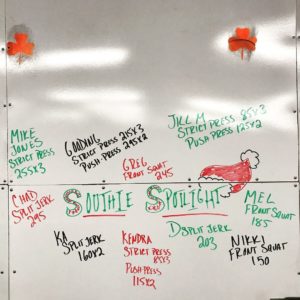 MIKE
JONES
STRICT PRESS
255x3
GODING
STRICT PRESS 215x3
PUSH PRESS 245x2
JILL M
STRICT PRESS 85x3
PUSH PRESS 125x2
GREG
FRONT SQUAT
245
CHAD
SPLIT JERK
295
SOUTHIE SPOTLIGHT
MEL
FRONT SQUAT
185
KA
SPLIT JERK
160x2
KENDRA
STRICT PRESS
85x3
PUSH PRESS
115x2
D SPLIT JERK
203
NIKKI
FRONT SQUAT
150